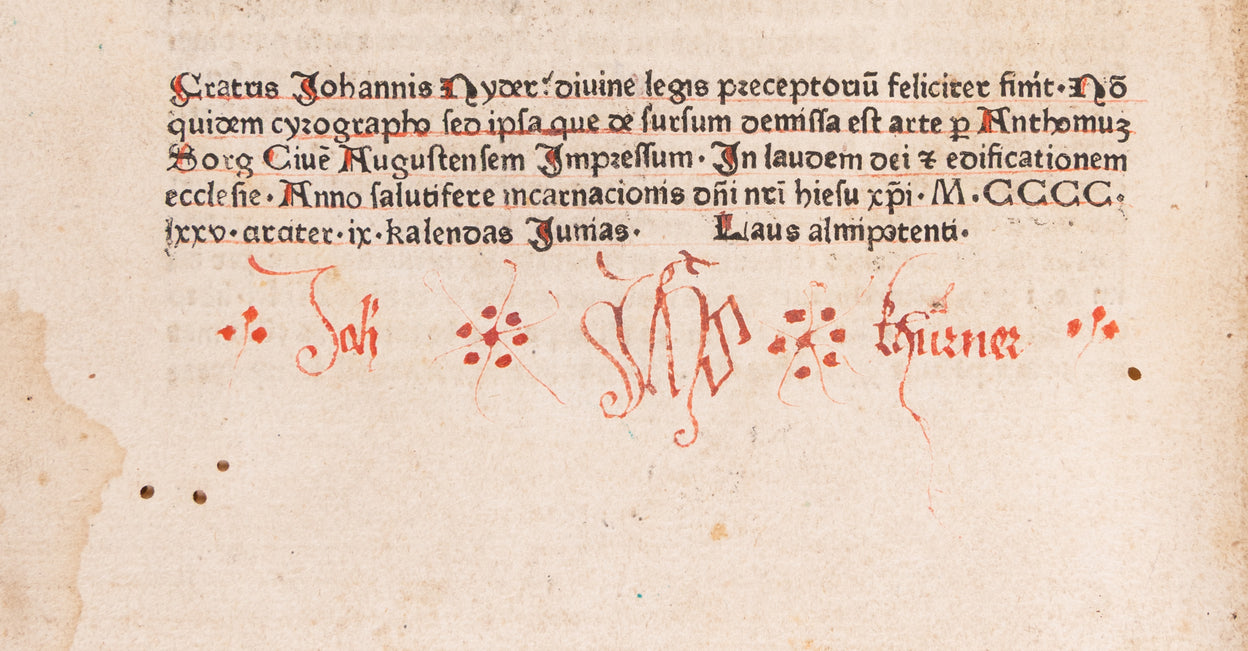 Fratris Johannis Nyder: diuine legis preceptoriū feliciter finit. Nō
quidem cyrographo sed ipsa que de sursum demissa est arte p̲ Anthomuʒ
Sorg Ciuē Augustensem Impressum. In laudem dei ⁊ edificationem
ecclesie. Anno salutifere incarnacionis dn̄i nr̄i hiesu xp̄i. M.CCCC.
lxxv. arater. ix. kalendas Junias. Laus almipotenti.
Joh Jhs thürner